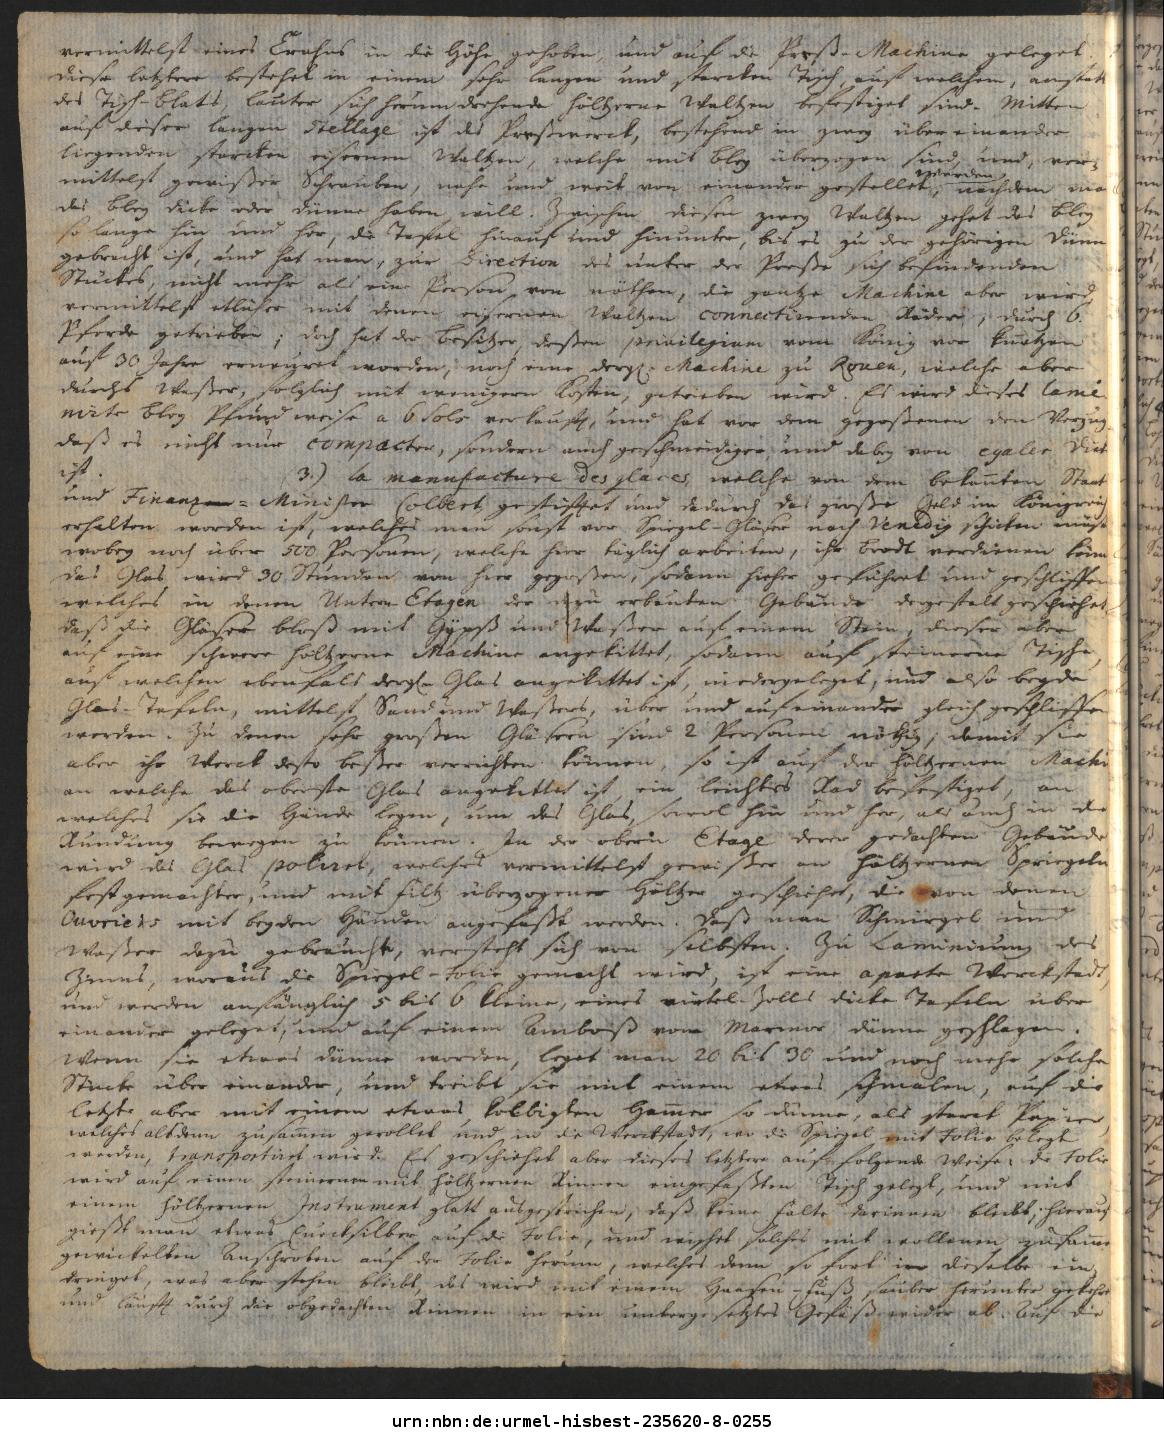 vermittelst eines Crahns in die Höhe gehoben, und auf die Preß-Machine geleget.
diese letztere bestehet in einem sehr langen und starcken Tisch, auf welchem, anstatt
des Tisch-blats, lauter sich herum drehende höltzerne Waltzen befestiget sind. Mitten
auf dieser langen Stellage ist das Preßwerck, bestehend in zwey über einander
liegenden starcken eisernen Waltzen, welche mit bley überzogen sind, und, ver-
mittelst gewißer Schrauben, nahe und weit von einander gestellet werden, nachdem ma
das bley dicke oder dünne haben will. Zwischen diesen zwey Waltzen gehet das bley
so lange hin und her, die Tafel hinauf und hinunter, bis es zu der gehörigen Dünn
gebracht ist, und hat man, zur Direction des unter der Preße sich befindenden
Stückes, nicht mehr als eine Person von nöthen, die gantze Machine aber wird
vermittelst etlicher mit denen eisernen Waltzen connectirenden Räder, durch 6.
Pferde getrieben; doch hat der besitzer, deßen privilegium vom König vor kurtzen
auf 30 Jahre erneuret worden, noch eine dergl. Machine zu Rouen, welche aber
durchs Waßer, folglich mit wenigern Kosten, getrieben wird. Es wird dieses lami-
nirte bley Pfund weise a 6 sols verkaufft, und hat vor dem gegoßenen den Vorzug
daß es nicht nur compacter, sondern auch geschmeidiger und dabey von egaler Dick
ist. 3.) la manufacture des glaces, welche von dem bekannten Staat
und Finanz-Minister Colbert gestifftet und dadurch das große Geld im Königreich
erhalten worden ist, welches man sonst vor Spiegel-Gläser nach Venedig schicken muste
wobey noch über 500 Personen, welche hier täglich arbeiten, ihr brodt verdienen könn
das Glas wird 30 Stunden von hier gegoßen, sodann hieher geführet und geschliffen
welches in denen Untern Etagen der dazu erbauten Gebäude dergestalt geschiehet
daß die Gläser bloß mit Gypß und Waßer auf einem Stein, dieser aber
auf eine schwere höltzerne Machine angekittet, sodann auf steinerne Tische,
auf welchen ebenfals dergl. Glas angekittet ist, niedergeleget, und also beyde
Glas-Tafeln, mittelst Sand und Waßers, über und auf einander gleich geschliffen
werden. Zu denen sehr großen Gläsern sind 2 Personen nöthig; damit sie
aber ihr Werck desto beßer verrichten können, so ist auf der höltzernen Machi
an welche das oberste Glas angekittet ist, ein leichtes Rad befestiget, an
welches sie die Hände legen, um das Glas, sowol hin und her, als auch in die
Rundung bewegen zu können. In der obern Etage derer gedachten Gebäude
wird das Glas poliret, welches vermittelst gewißer an höltzernen Spriegeln
fest gemachter, und mit Filtz überzogener Höltzer geschiehet, die von denen
Ouvriers mit beyden Händen angefaßt werden. Daß man Schmirgel und
Waßer dazu gebrauche, verstehet sich von selbsten. Zu Laminirung des
Zinns, woraus die Spiegel-Folie gemacht wird, ist eine aparte Werckstadt,
und werden anfänglich 5 bis 6 kleine, eines viertel-Zolls dicke Tafeln über
einander geleget, und auf einem Amboß von Marmor dünne geschlagen.
Wenn sie etwas dünne worden, leget man 20 bis 30 und noch mehr solche
Stücke über einander, und treibt sie mit einem etwas schmalen, auf die
letzte aber mit einem etwas kolbigten Hammer so dünne, als starck Papier,
welches alsdenn zusammen gerollet und in die Werckstadt, wo die Spiegel mit Folie belegt
werden, transportiret wird. Es geschiehet aber dieses letztere auf folgende Weise: die Folie
wird auf einen steinernen mit höltzernen Rinnen eingefaßten Tisch gelegt, und mit
einem höltzernen Instrument glatt ausgestrichen, daß keine Falte darinnen bleibt; hierauf
gießt man etwas Quecksilber auf die Folie, und wischet solches mit wollenen zusamm
gewickelten Anschroten auf der Folie herum, welches denn so fort in dieselbe ein
dringet, was aber stehen bleibt, das wird mit einem Haasen-Fuß sauber herunter gekehrt
und läufft durch die obgedachten Rinnen in ein untergesetztes Gefäß wieder ab. Auf die
urn:nbn:de:urmel-hisbest-235620-8-0255